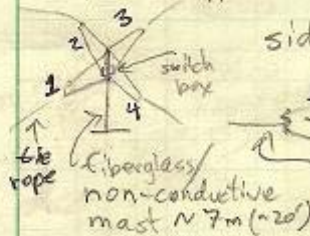 3
2
side
switch
box
1
4
tie
rope
fiberglass/
non-conductive
mast ~ 7m (~20')